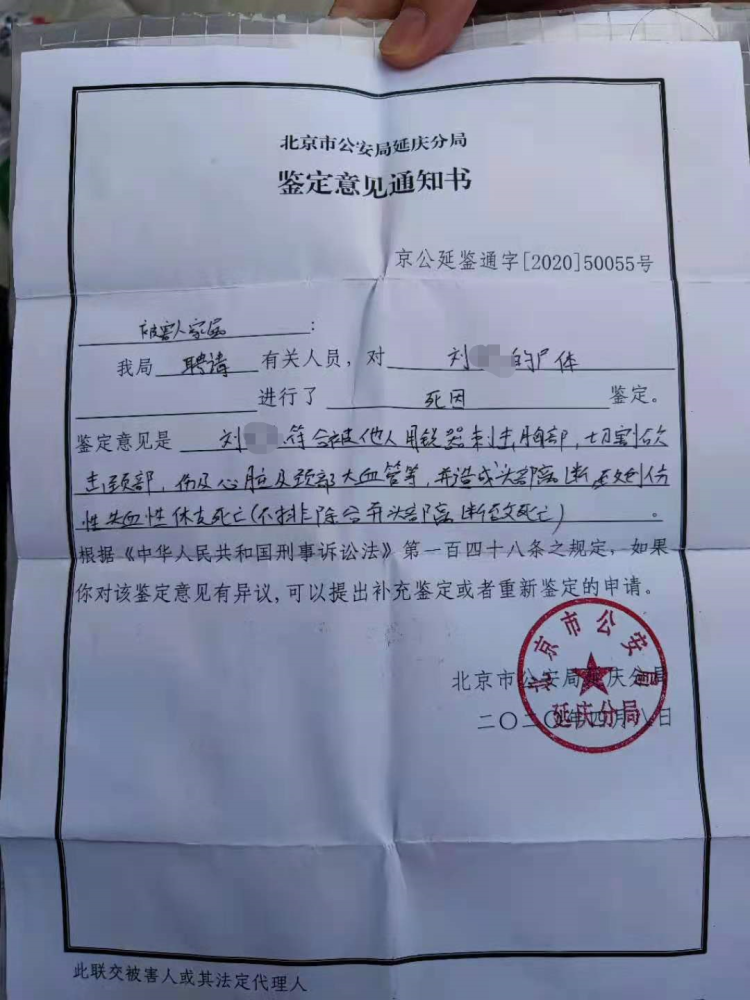 北京市公安局延庆分局
鉴定意见通知书
京公延鉴通字[2020]50055号
被害人家属：
我局 聘请 有关人员，对 刘 的尸体
进行了 死因 鉴定。
鉴定意见是 刘 符合被他人用锐器刺击胸部，切割砍
击颈部，伤及心脏及颈部大血管等，并造成头部离断致创伤
性失血性休克死亡（不排除合并头部离断致死亡）。
根据《中华人民共和国刑事诉讼法》第一百四十八条之规定，如果
你对该鉴定意见有异议，可以提出补充鉴定或者重新鉴定的申请。
北京市公安局延庆分局
二〇二〇年四月八日
北京市公安局
延庆分局
此联交被害人或其法定代理人